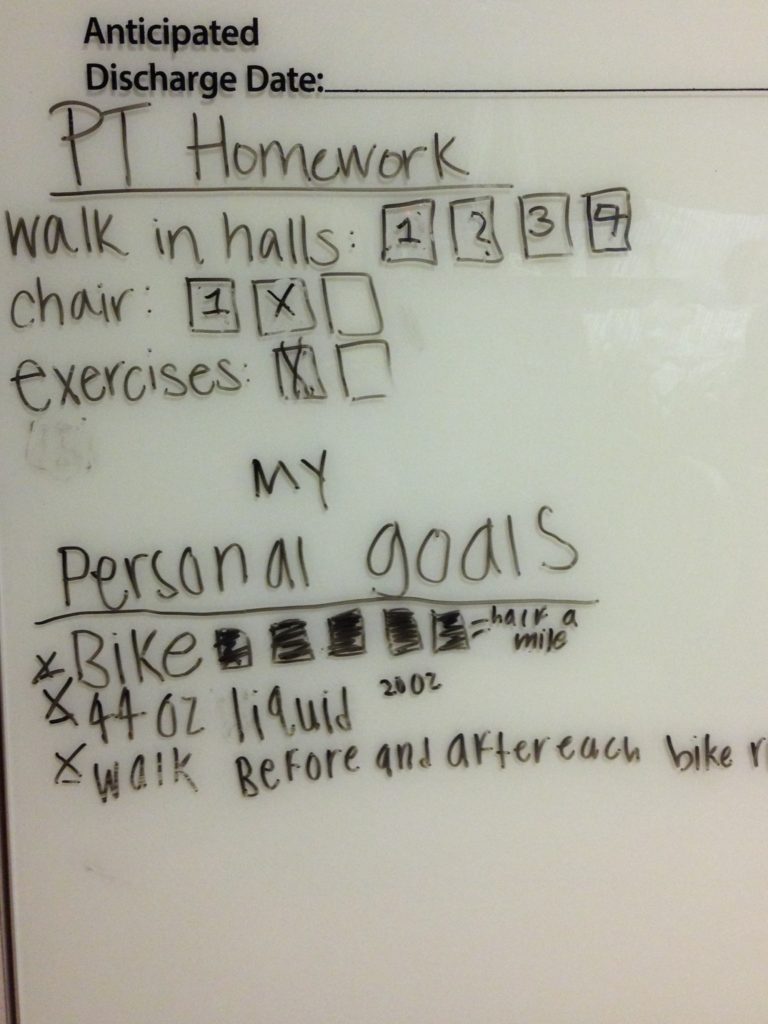 Anticipated
Discharge Date:
PT Homework
walk in halls: 1 2 3 4
chair: 1 X
exercises: X
MY
Personal goals
x Bike = half a mile
X 44 oz liquid 20oz
X walk Before and after each bike r